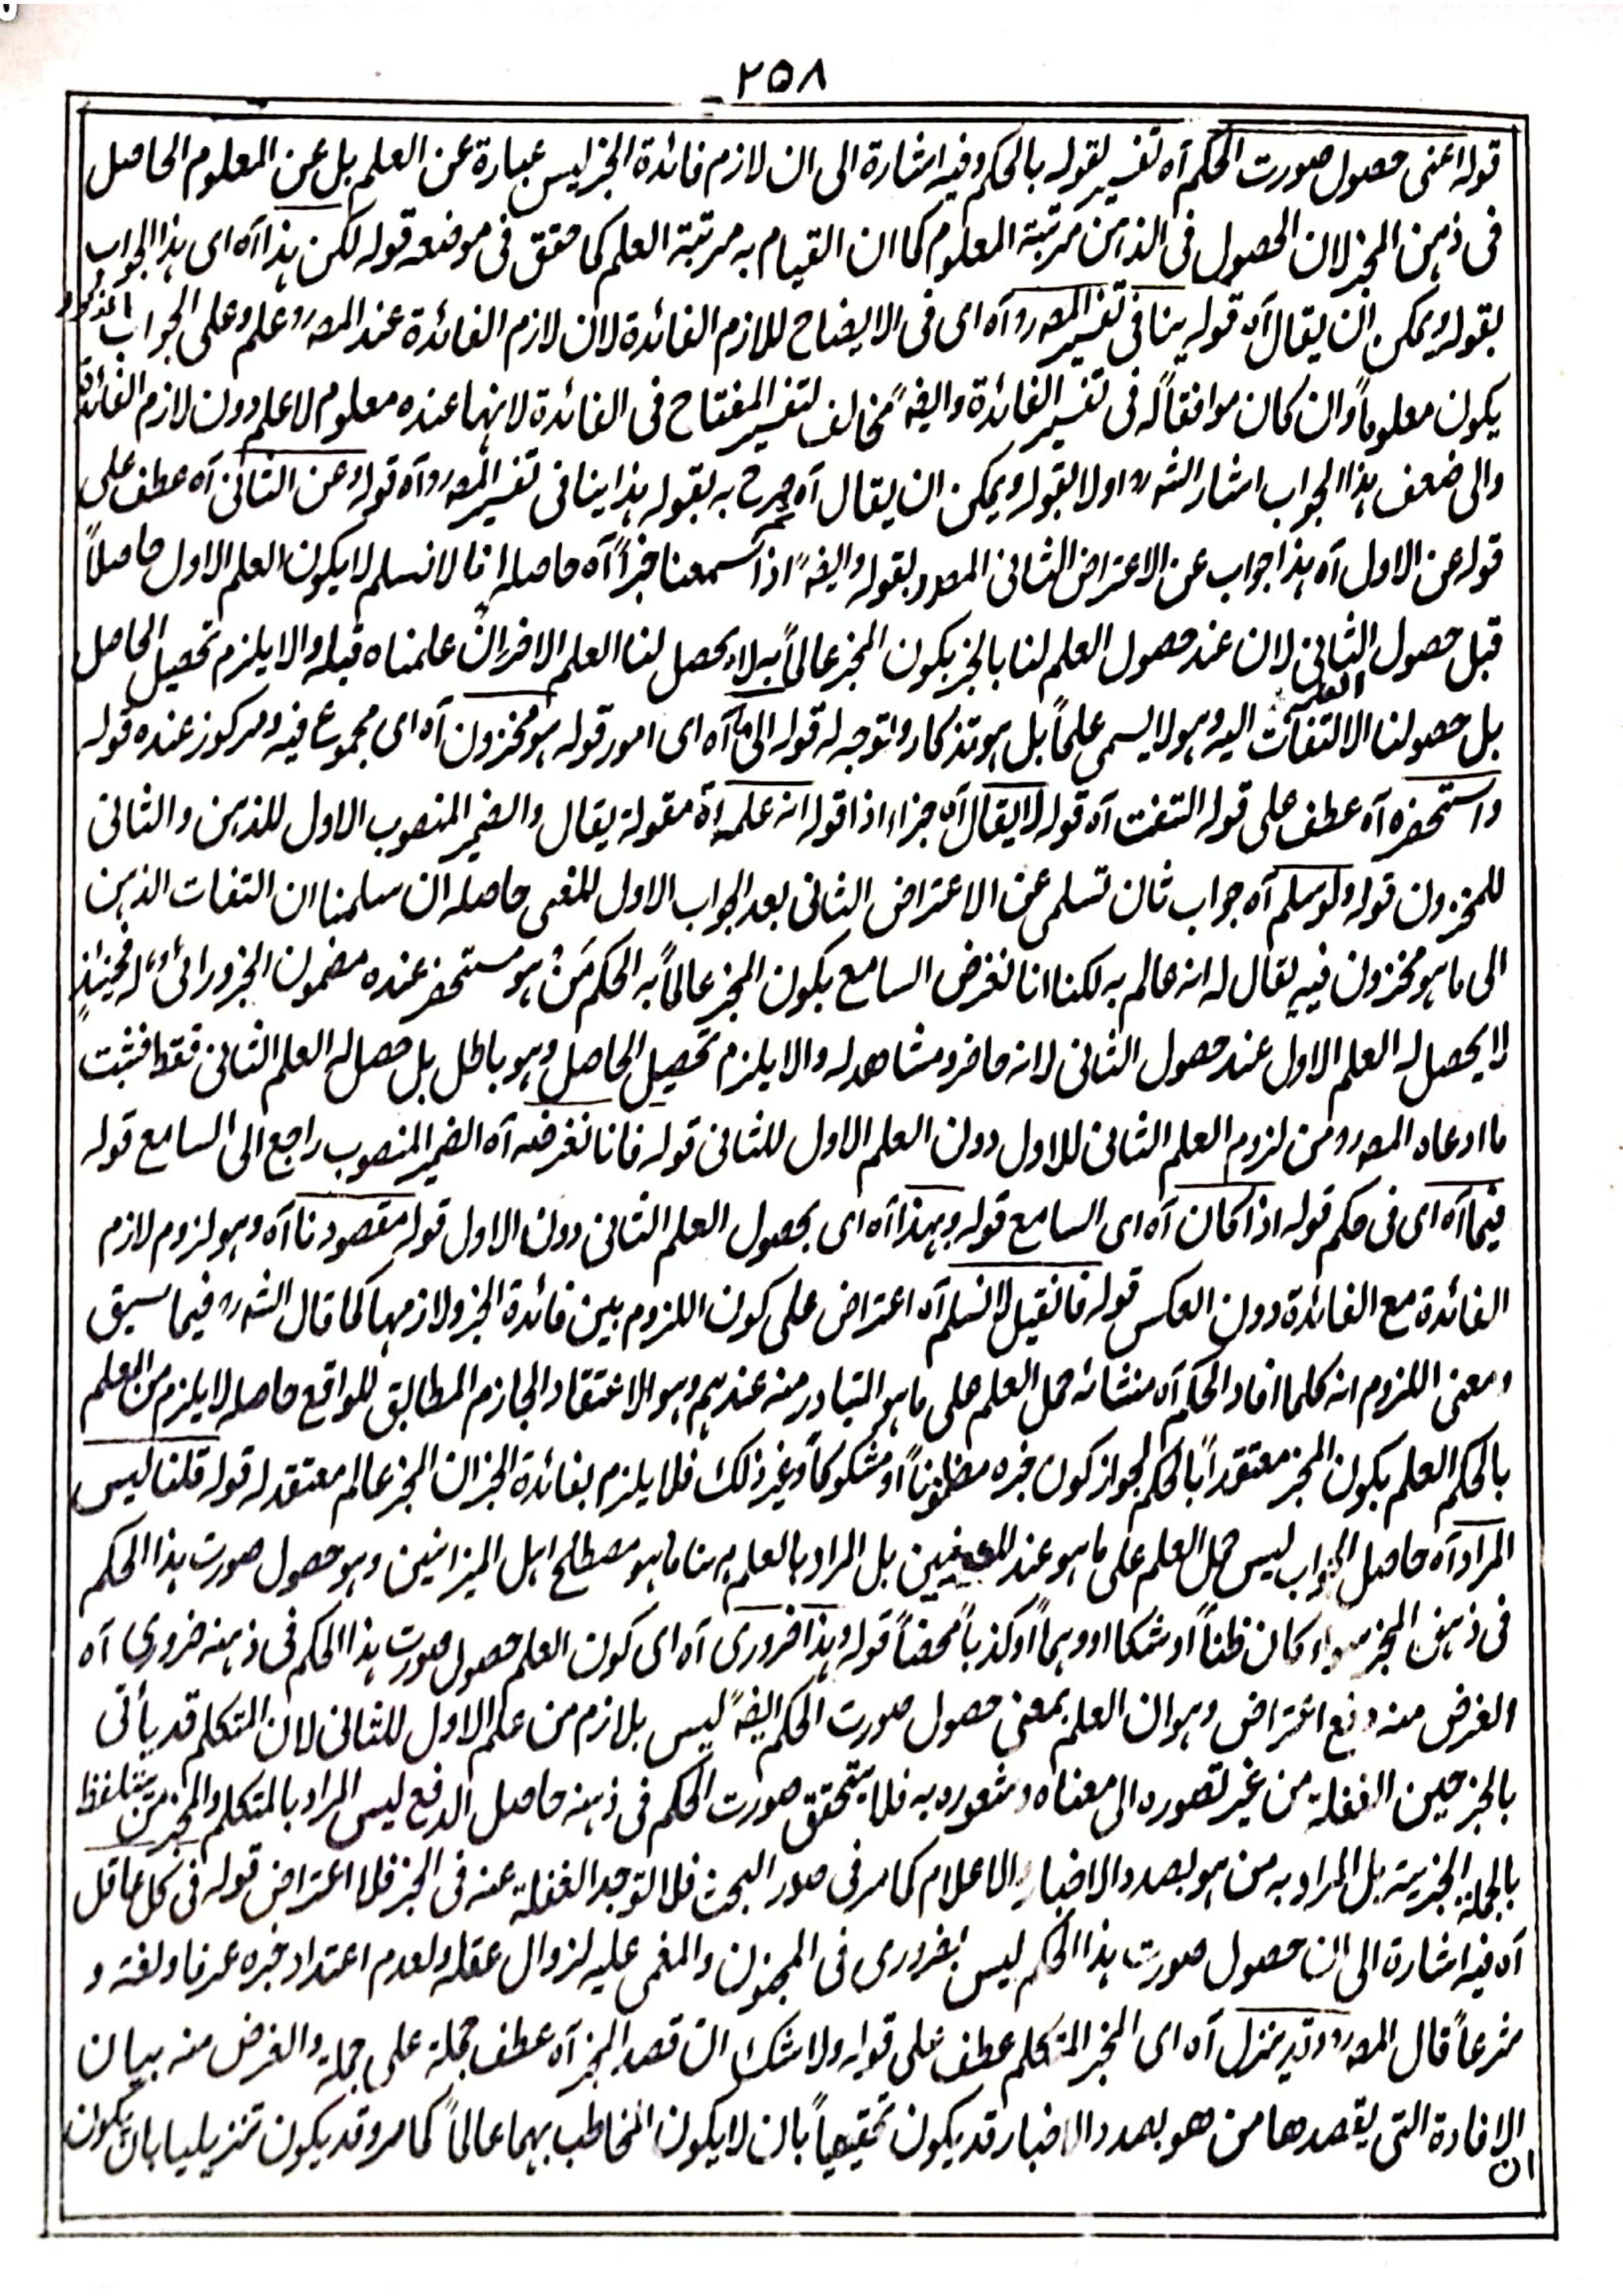 ٢٥٨
قوله اعنى حصول صورت الحكم آه تفسير لقوله بالحكم وفيه اشارة الى ان لازم فائدة الخبر ليس عبارة عن العلم بل عن المعلوم الحاصل
فى ذهن المخبر لان الحصول فى الذهن مرتبة المعلوم كما ان القيام به مرتبة العلم كما حقق فى موضعه قوله لكن هذا آه اى هذا الجواب المذكور
بقوله ويمكن ان يقال آه قوله ينافى تفسير المصه رو آه اى فى الايضاح للازم الفائدة لان لازم الفائدة عند المصه رو علم وعلى الجواب
يكون معلوماً وان كان موافقاً له فى تفسير الفائدة وايضهً مخالف لتفسير المفتاح فى الفائدة لانها عنده معلوم لا علم دون لازم الفائدة
والى ضعف هذا الجواب اشار الشه رو اولا بقوله ويمكن ان يقال آه ثم صرح به بقوله هذا ينافى تفسير المصه رو آه قوله وعن الثانى آه عطف على
قوله عن الاول آه هذا جواب عن الاعتراض الثانى المصدر بقوله وايضهً اذا سمعنا خبراً آه حاصله انا لا نسلم لا يكون العلم الاول حاصلاً
قبل حصول الثانى لان عند حصول العلم لنا بالخبر يكون المخبر عالماً به لا يحصل لنا العلم الاخر لان علمناه قبله والا يلزم تحصيل الحاصل
بل حصو لنا الالتفات اليه وهو لا يسمى علماً بل هو تذكار وتوجه له قوله الى ما آه اى امور قوله هو مخزون آه اى مجموع فيه ومركوز عنده قوله
واستحضره آه عطف على قوله التفت آه قوله لا يقال آه جزاء اذا قوله انه علمه آه مقولة يقال والضمير المنصوب الاول للذهن والثانى
للمخزون قوله ولو سلم آه جواب ثان تسلمى عن الاعتراض الثانى بعد الجواب الاول للمنعى حاصله ان سلمنا ان التفات الذهن
الى ما هو مخزون فيه يقال له انه عالم به لكنا انا نفرض السامع بكون المخبر عالماً به الحكم مَنْ هو مستحضر عنده مضمون الخبر و رائى له فحينئذٍ
لا يحصل له العلم الاول عند حصول الثانى لانه حاضر ومشاهد له والا يلزم تحصيل الحاصل وهو باطل بل حصل له العلم الثانى فقط فثبت
ما ادعاه المصه رو من لزوم العلم الثانى للاول دون العلم الاول للثانى قوله فانا نفرضه آه الضمير المنصوب راجع الى السامع قوله
فيما آه اى فى حكم قوله اذا كان آه اى السامع قوله وبهذا آه اى بحصول العلم الثانى دون الاول قوله مقصودنا آه وهو لزوم لازم
الفائدة مع الفائدة دون العكس قوله فان قيل لا نسلم آه اعتراض على كون اللزوم بين فائدة الخبر ولازمها كما قال الشه رو فيما سبق
ومعنى اللزوم انه كلما افاد الحكم آه منشائه حمل العلم على ما هو المتبادر منه عندهم وهو الاعتقاد الجازم المطابق للواقع حاصله لا يلزم من العلم
بالحكم العلم بكون المخبر معتقداً بالحكم لجواز كون خبره مظنوناً او مشكوكاً وغير ذلك فلا يلزم بفائدة الخبر ان المخبر عالم معتقد له قوله قلنا ليس
المراد آه حاصل الجواب ليس حمل العلم على ما هو عند بل المراد بالعلم هنا ما هو مصطلح اهل الميزانين وهو حصول صورت هذا الحكم
فى ذهن المخبر سواء كان ظناً او شكا او وهماً او كذباً محضاً قوله وهذا ضرورى آه اى كون العلم حصول صورت هذا الحكم فى ذهنه ضرورى آه
الغرض منه دفع اعتراض وهو ان العلم بمعنى حصول صورت الحكم ايضهً ليس بلازم من علم الاول للثانى لان المتكلم قد يأتى
بالخبر حين الغفلة من غير تصوره الى معناه وشعوره به فلا يتحقق صورت الحكم فى ذهنه حاصل الدفع ليس المراد بالمتكلم والمخبر من يتلفظ
بالجملة الخبرية بل المراد به من هو بصدد الاخبار والاعلام كما مر فى صدر البحث فلا توجد الغفلة عنه فى الخبر فلا اعتراض قوله فى كل عاقل
آه فيه اشارة الى ان حصول صورت هذا الحكم ليس بضرورى فى المجنون والمغمى عليه لزوال عقله ولعدم اعتداد خبره عرفا ولغة و
شرعاً قال المصه رو وقد ينزل آه اى المخبر المتكلم عطف على قوله ولا شك ان قصد المخبر آه عطف جملة على جملة والغرض منه بيان
ان الافادة التى يقصدها من هو بصدد الاخبار قد يكون تحقيقياً بان لا يكون المخاطب بهما عالماً كما مر وقد يكون تنزيليا بان يكون